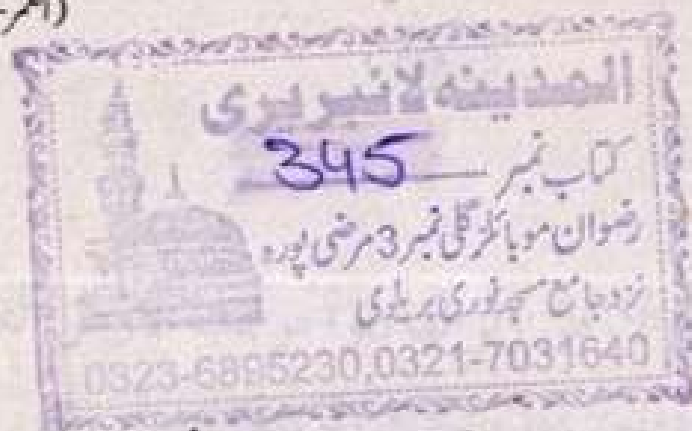 المدینه لائبریری
کتاب نمبر 345
رضوان موبائلز گلی نمبر 3 مرضی پورہ
نزد جامع مسجد نوری بریلوی
0323-6895230,0321-7031640